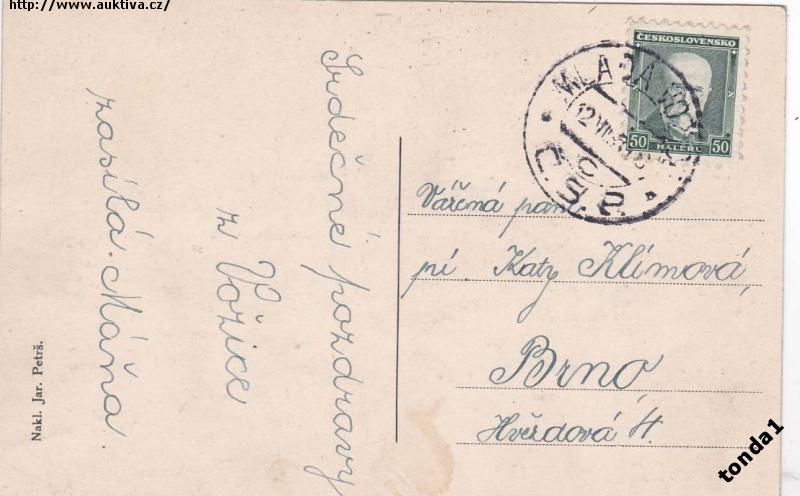 http://www.auktiva.cz/
Srdečné pozdravy
z Vožice
zasílá Máňa.
Nakl. Jar. Petrš.
ČESKOSLOVENSKO
50 HALÉŘŮ 50
MLADÁ VOŽ
12 VII
Č.S.P.
Vážená paní
pí Katy Klímová,
Brno,
4.
tonda1